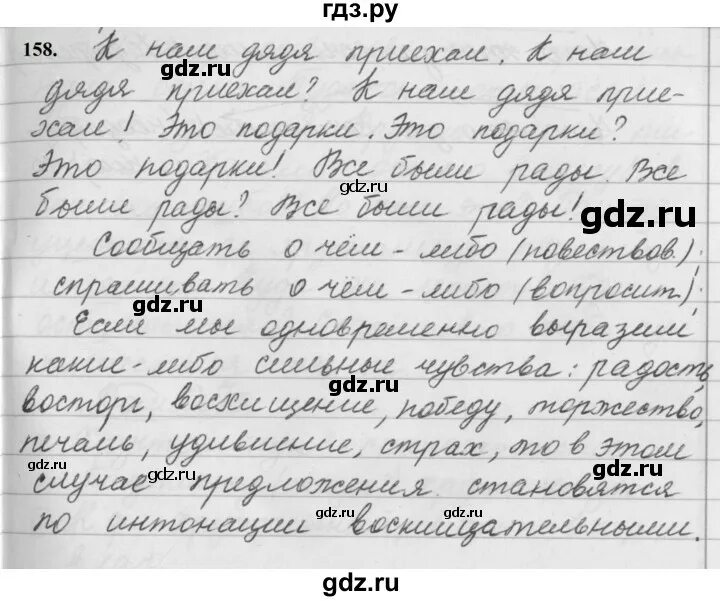 гдз.ру
158. К нам дядя приехал. К нам
gdz.ru gdz.ru
дядя приехал? К нам дядя прие-
хал! Это подарки. Это подарки?
gdz.ru
Это подарки! Все были рады. Все
gdz.ru
были рады? Все были рады!
gdz.ru
Сообщать о чём-либо (повествов.);
gdz.ru
спрашивать о чём-либо (вопросит.);
gdz.ru
Если мы одновременно выразим
какие-либо сильные чувства: радость,
gdz.ru gdz.ru
восторг, восхищение, победу, торжество,
печаль, удивление, страх, то в этом
gdz.ru gdz.ru gdz.ru
случае предложения становятся
gdz.ru gdz.ru
по интонации восклицательными.
gdz.ru